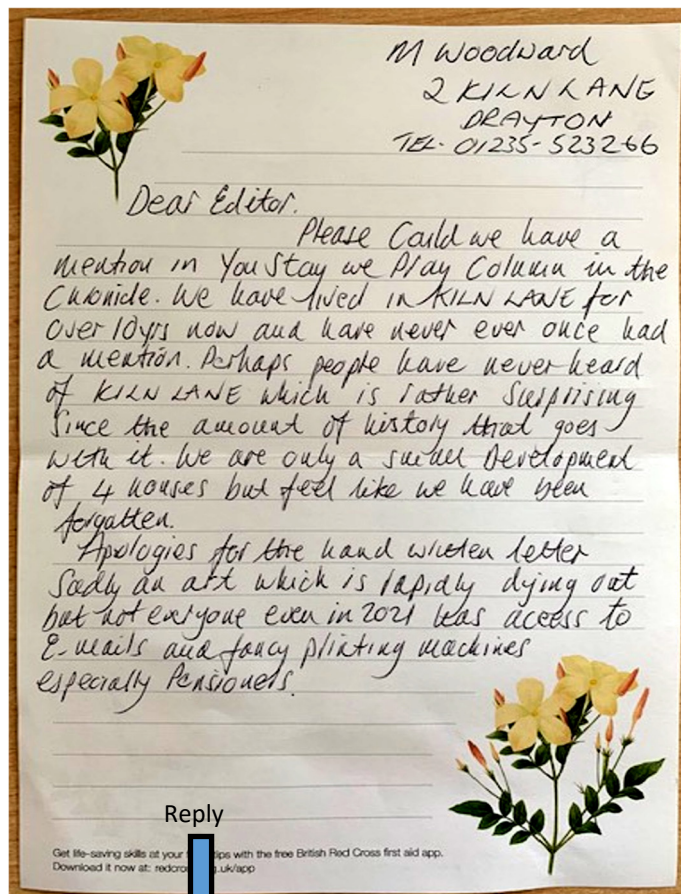 M Woodward
2 KILN LANE
DRAYTON
TEL- 01235-523266
Dear Editor.
Please Could we have a
mention in You Stay we Play Column in the
Chronicle. We have lived in KILN LANE for
over 10yrs now and have never ever once had
a mention. Perhaps people have never heard
of KILN LANE which is rather Surprising
Since the amount of history that goes
with it. We are only a small Development
of 4 houses but feel like we have been
forgotten.
Apologies for the hand written letter
Sadly an art which is rapidly dying out
but not everyone even in 2021 has access to
E-mails and fancy printing machines
especially Pensioners.
Reply
Get life-saving skills at your tips with the free British Red Cross first aid app.
Download it now at: g.uk/app